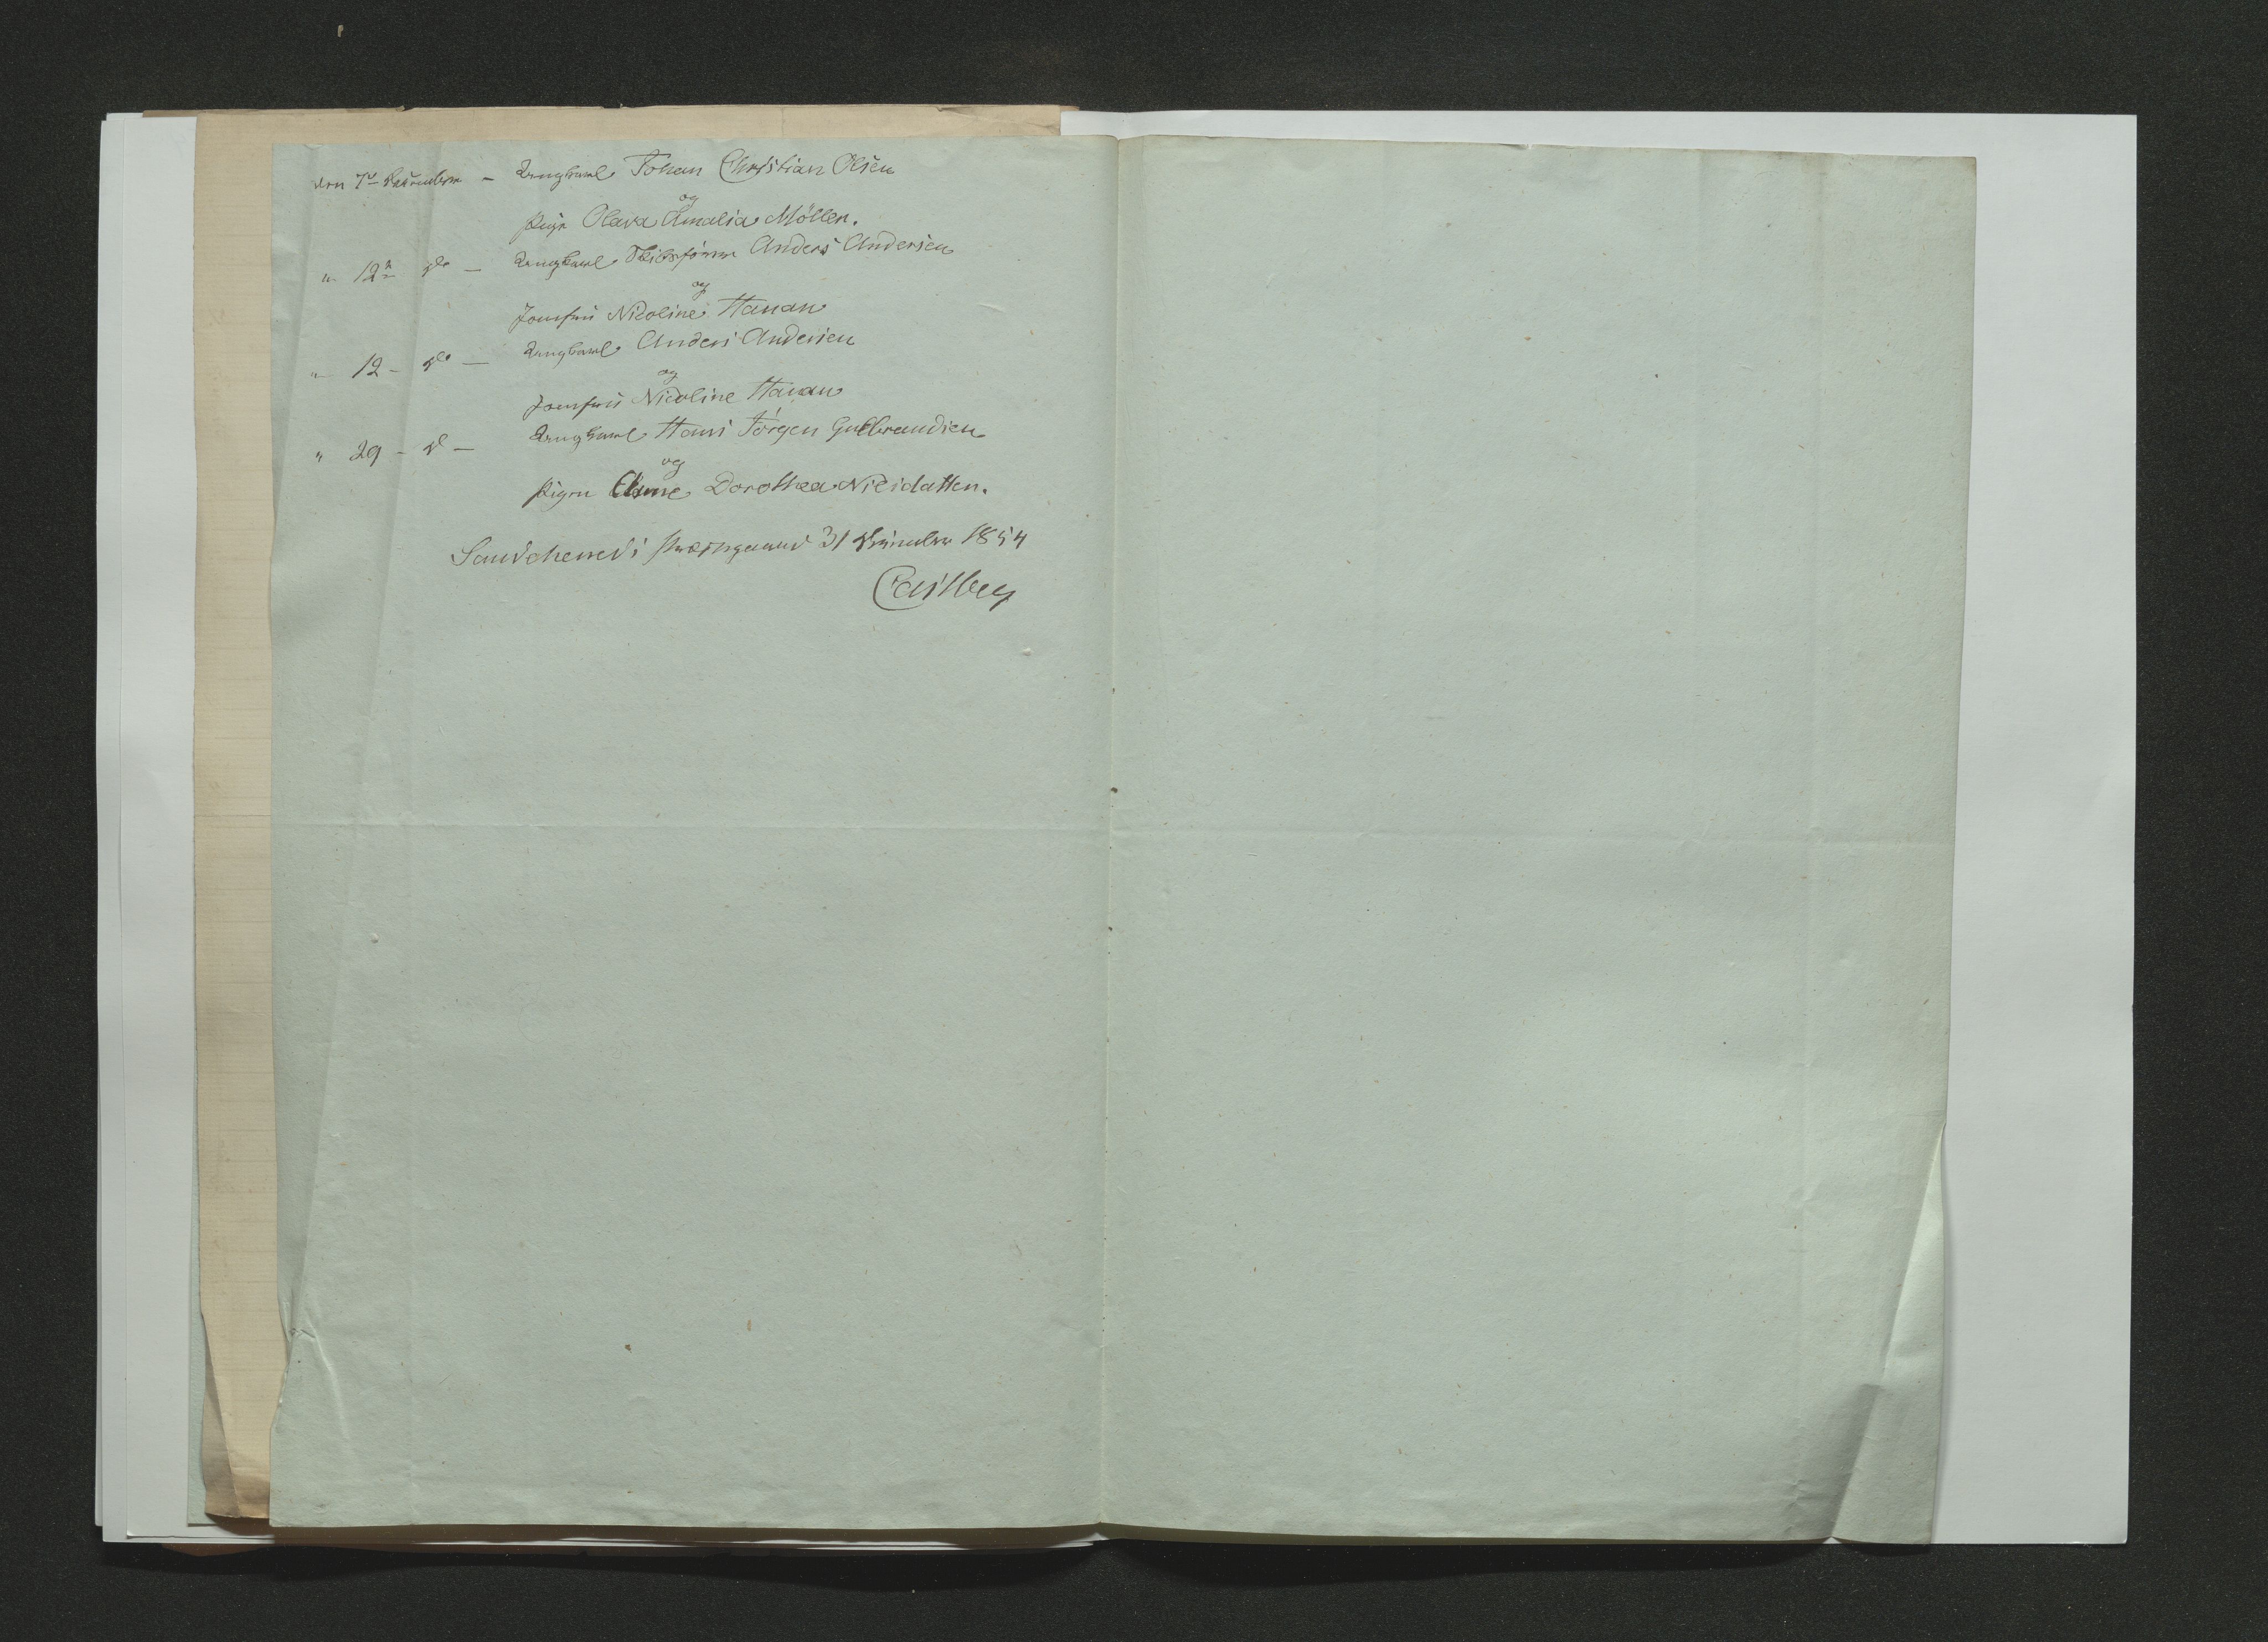 den 7de December – Ungkarl Johan Christian Olsen
og
Pige Olava Amalia Möller.
" 12te do – Ungkarl Skibsfører Anders Andersen
og
Jomfru Nicoline Hanan
" 12 – do – Ungkarl Anders Andersen
og
Jomfru Nicoline Hanan
" 29 – d – Ungkarl Hans Jörgen Gulbrandsen
og
Pigen Anne Dorothea Nilsdatter.
Sandeherreds Præstegaard 31 December 1854